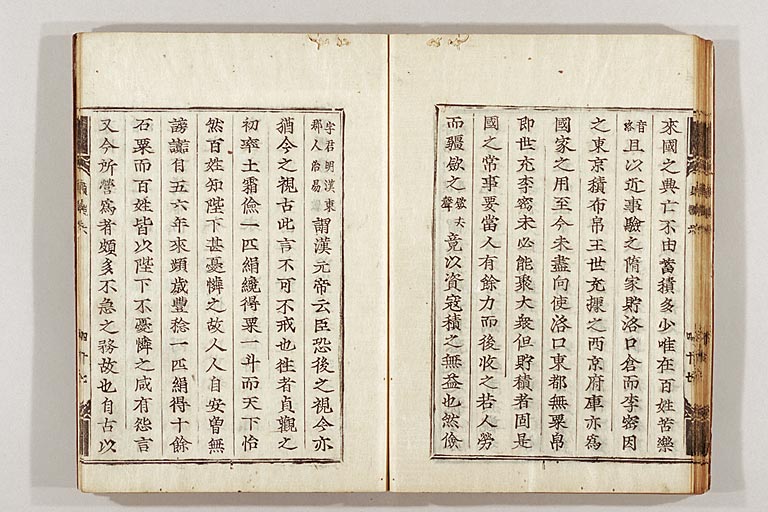 來國之興亡不由蓄積多少唯在百姓苦樂
音洛且以近事驗之隋家貯洛口倉而李密因
之東京積布帛王世充據之西京府庫亦爲
國家之用至今未盡向使洛口東都無粟帛
即世充李密未必能聚大衆但貯積者固是
國之常事要當人有餘力而後收之若人勞
而彊斂之 竟以資寇積之無益也然儉
字君明漢東郡人治易 謂漢元帝云臣恐後之視今亦
猶今之視古此言不可不戒也徃者貞觀之
初率土霜儉一匹絹纔得粟一斗而天下怡
然百姓知陛下甚憂憐之故人人自安曾無
謗讟自五六年來頻歲豐稔一匹絹得十餘
石粟而百姓皆以陛下不憂憐之咸有怨言
又今所營爲者頗多不急之務故也自古以